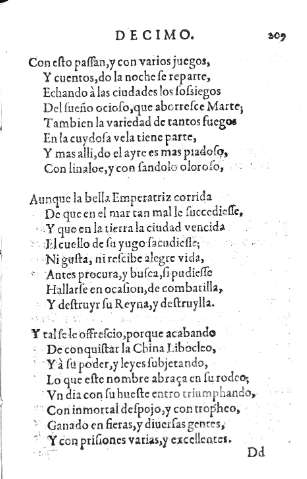 DECIMO. 209
Con esto passan, y con varios juegos,
Y cuentos, do la noche se reparte,
Echando à las ciudades los sossiegos
Del sueño ocioso, que aborresce Marte;
Tambien la variedad de tantos fuegos
En la cuydosa vela tiene parte,
Y mas alli, do el ayre es mas piadoso,
Con linaloe, y con sandolo oloroso,
Aunque la bella Emperatriz corrida
De que en el mar tan mal le succediesse,
Y que en la tierra la ciudad vencida
El cuello de su yugo sacudiesse;
Ni gusta, ni rescibe alegre vida,
Antes procura, y busca, si pudiesse
Hallarse en ocasion, de combatilla,
Y destruyr su Reyna, y destruylla.
Y tal se le offrescio, porque acabando
De conquistar la China Libocleo,
Y à su poder, y leyes subjetando,
Lo que este nombre abraça en su rodeo;
Vn dia con su hueste entro triumphando,
Con inmortal despojo, y con tropheo,
Ganado en fieras, y diuersas gentes,
Y con prisiones varias, y excellentes.
Dd